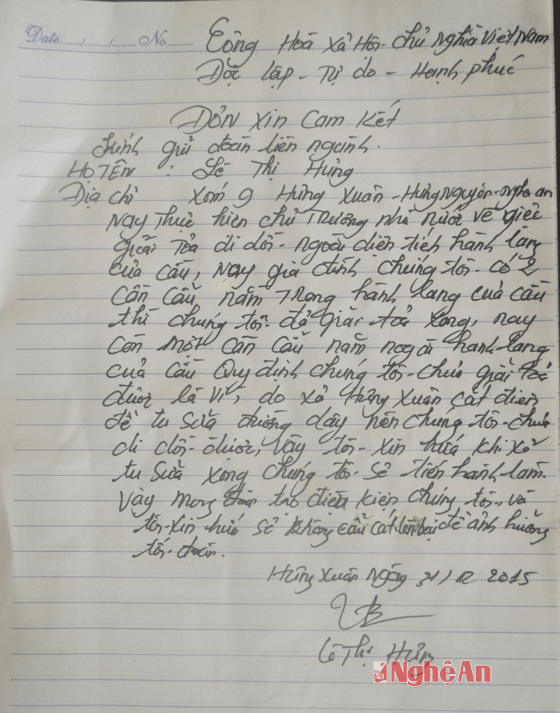 Date / / No Cộng Hoà Xã Hội Chủ Nghĩa Việt Nam
Độc lập - Tự do - Hạnh phúc
ĐƠN XIN CAM KẾT
Kính gửi đoàn liên ngành.
HỌ TÊN : Lê Thị Hưng
Địa chỉ xóm 9 Hưng Xuân - Hưng Nguyên - Nghệ an
Nay thực hiện chủ trương nhà nước về việc
giải tỏa di dời - ngoài diện tích hành lang
của cầu, nay gia đình chúng tôi - có 2
căn cẩu nằm trong hành lang của cầu
thì chúng tôi đã giải tỏa xong, nay
còn một căn cẩu nằm ngoài hành lang
của cầu quy định chúng tôi - chưa giải tỏa
được là vì, do xã Hưng Xuân cắt điện
để tu sửa đường dây nên chúng tôi - chưa
di dời được, vậy tôi - xin hứa khi xã
tu sửa xong chúng tôi - sẽ tiến hành làm.
Vậy mong đoàn tạo điều kiện chúng tôi, và
tôi xin hứa sẽ không cẩu cát lên lại để ảnh hưởng
tới đoàn.
Hưng Xuân Ngày 31/12 2015
Lê Thị Hưng
Nghệ An